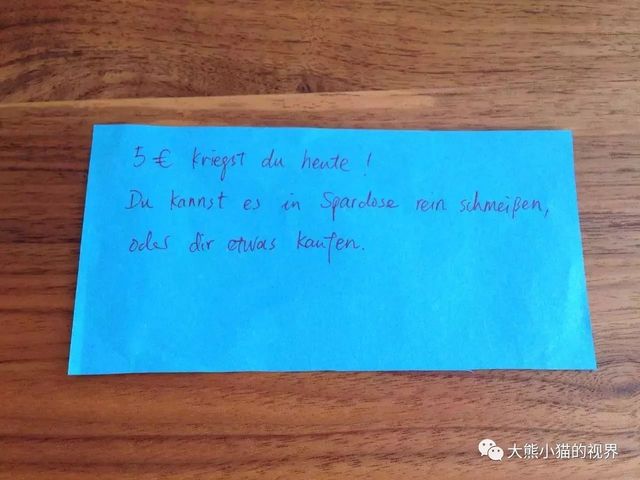 5 € kriegst du heute !
Du kannst es in Spardose rein schmeißen,
oder dir etwas kaufen.
大熊小猫的视界